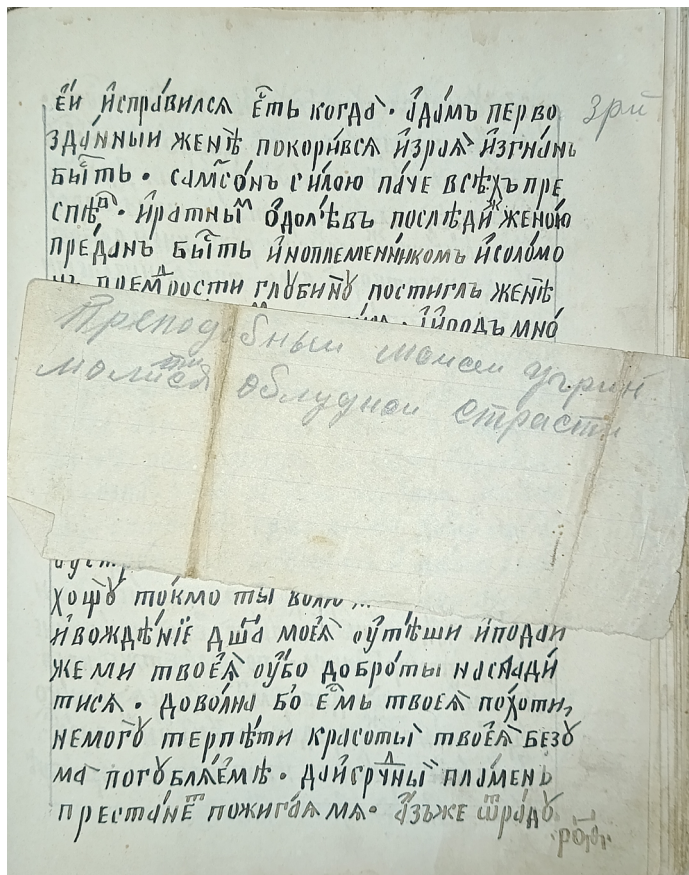 е́й и҆спра́вился є҆́сть когда̀ · а҆да́мъ перво
зда́нный женѣ̀ покори́вся и҆зраѧ̀ и҆згна́нъ
бы́сть · самсо́нъ си́лою па́че всѣ́хъ пре
спѣ́в · и҆ратны́м ѻ҆долѣ́въ послѣди́ жено́ю
пре́данъ бы́сть и҆ноплеме́нникомъ и҆соломо
нъ премⷣрости глꙋбинꙋ̀ пости́глъ женѣ̀
и҆́родъ мно́
Преподобныи моисеи угрин
молитися облуднои страсти
хощꙋ̀ то́кмо ты̀
и҆вождѣнїе дш҃а̀ моеѧ̀ ᲂу҆тѣ́ши и҆пода́й
же ми твоеѧ̀ ᲂу҆́бо добро́ты наслади́
тися · дово́лна бо̀ є҆́смь твоеѧ̀ по́хоти,
немогꙋ̀ терпѣ́ти красоты̀ твоеѧ̀ безꙋ́
ма̀ погꙋбля́емѣ · да и҆срⷣчны́й пла́мень
преста́нет пожига́я мя̀ · а҆́зъже ѿра́дꙋ